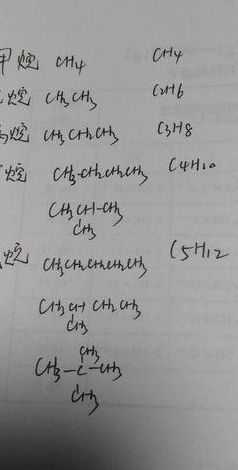 甲烷 CH4 CH4
烷 CH3CH3 C2H6
烷 CH3CH2CH3 C3H8
烷 CH3-CH2CH2CH3 C4H10
CH3CH-CH3
CH3
烷 CH3CH2CH2CH2CH3 C5H12
CH3CH CH2CH3
CH3
CH3
CH3-C-CH3
CH3